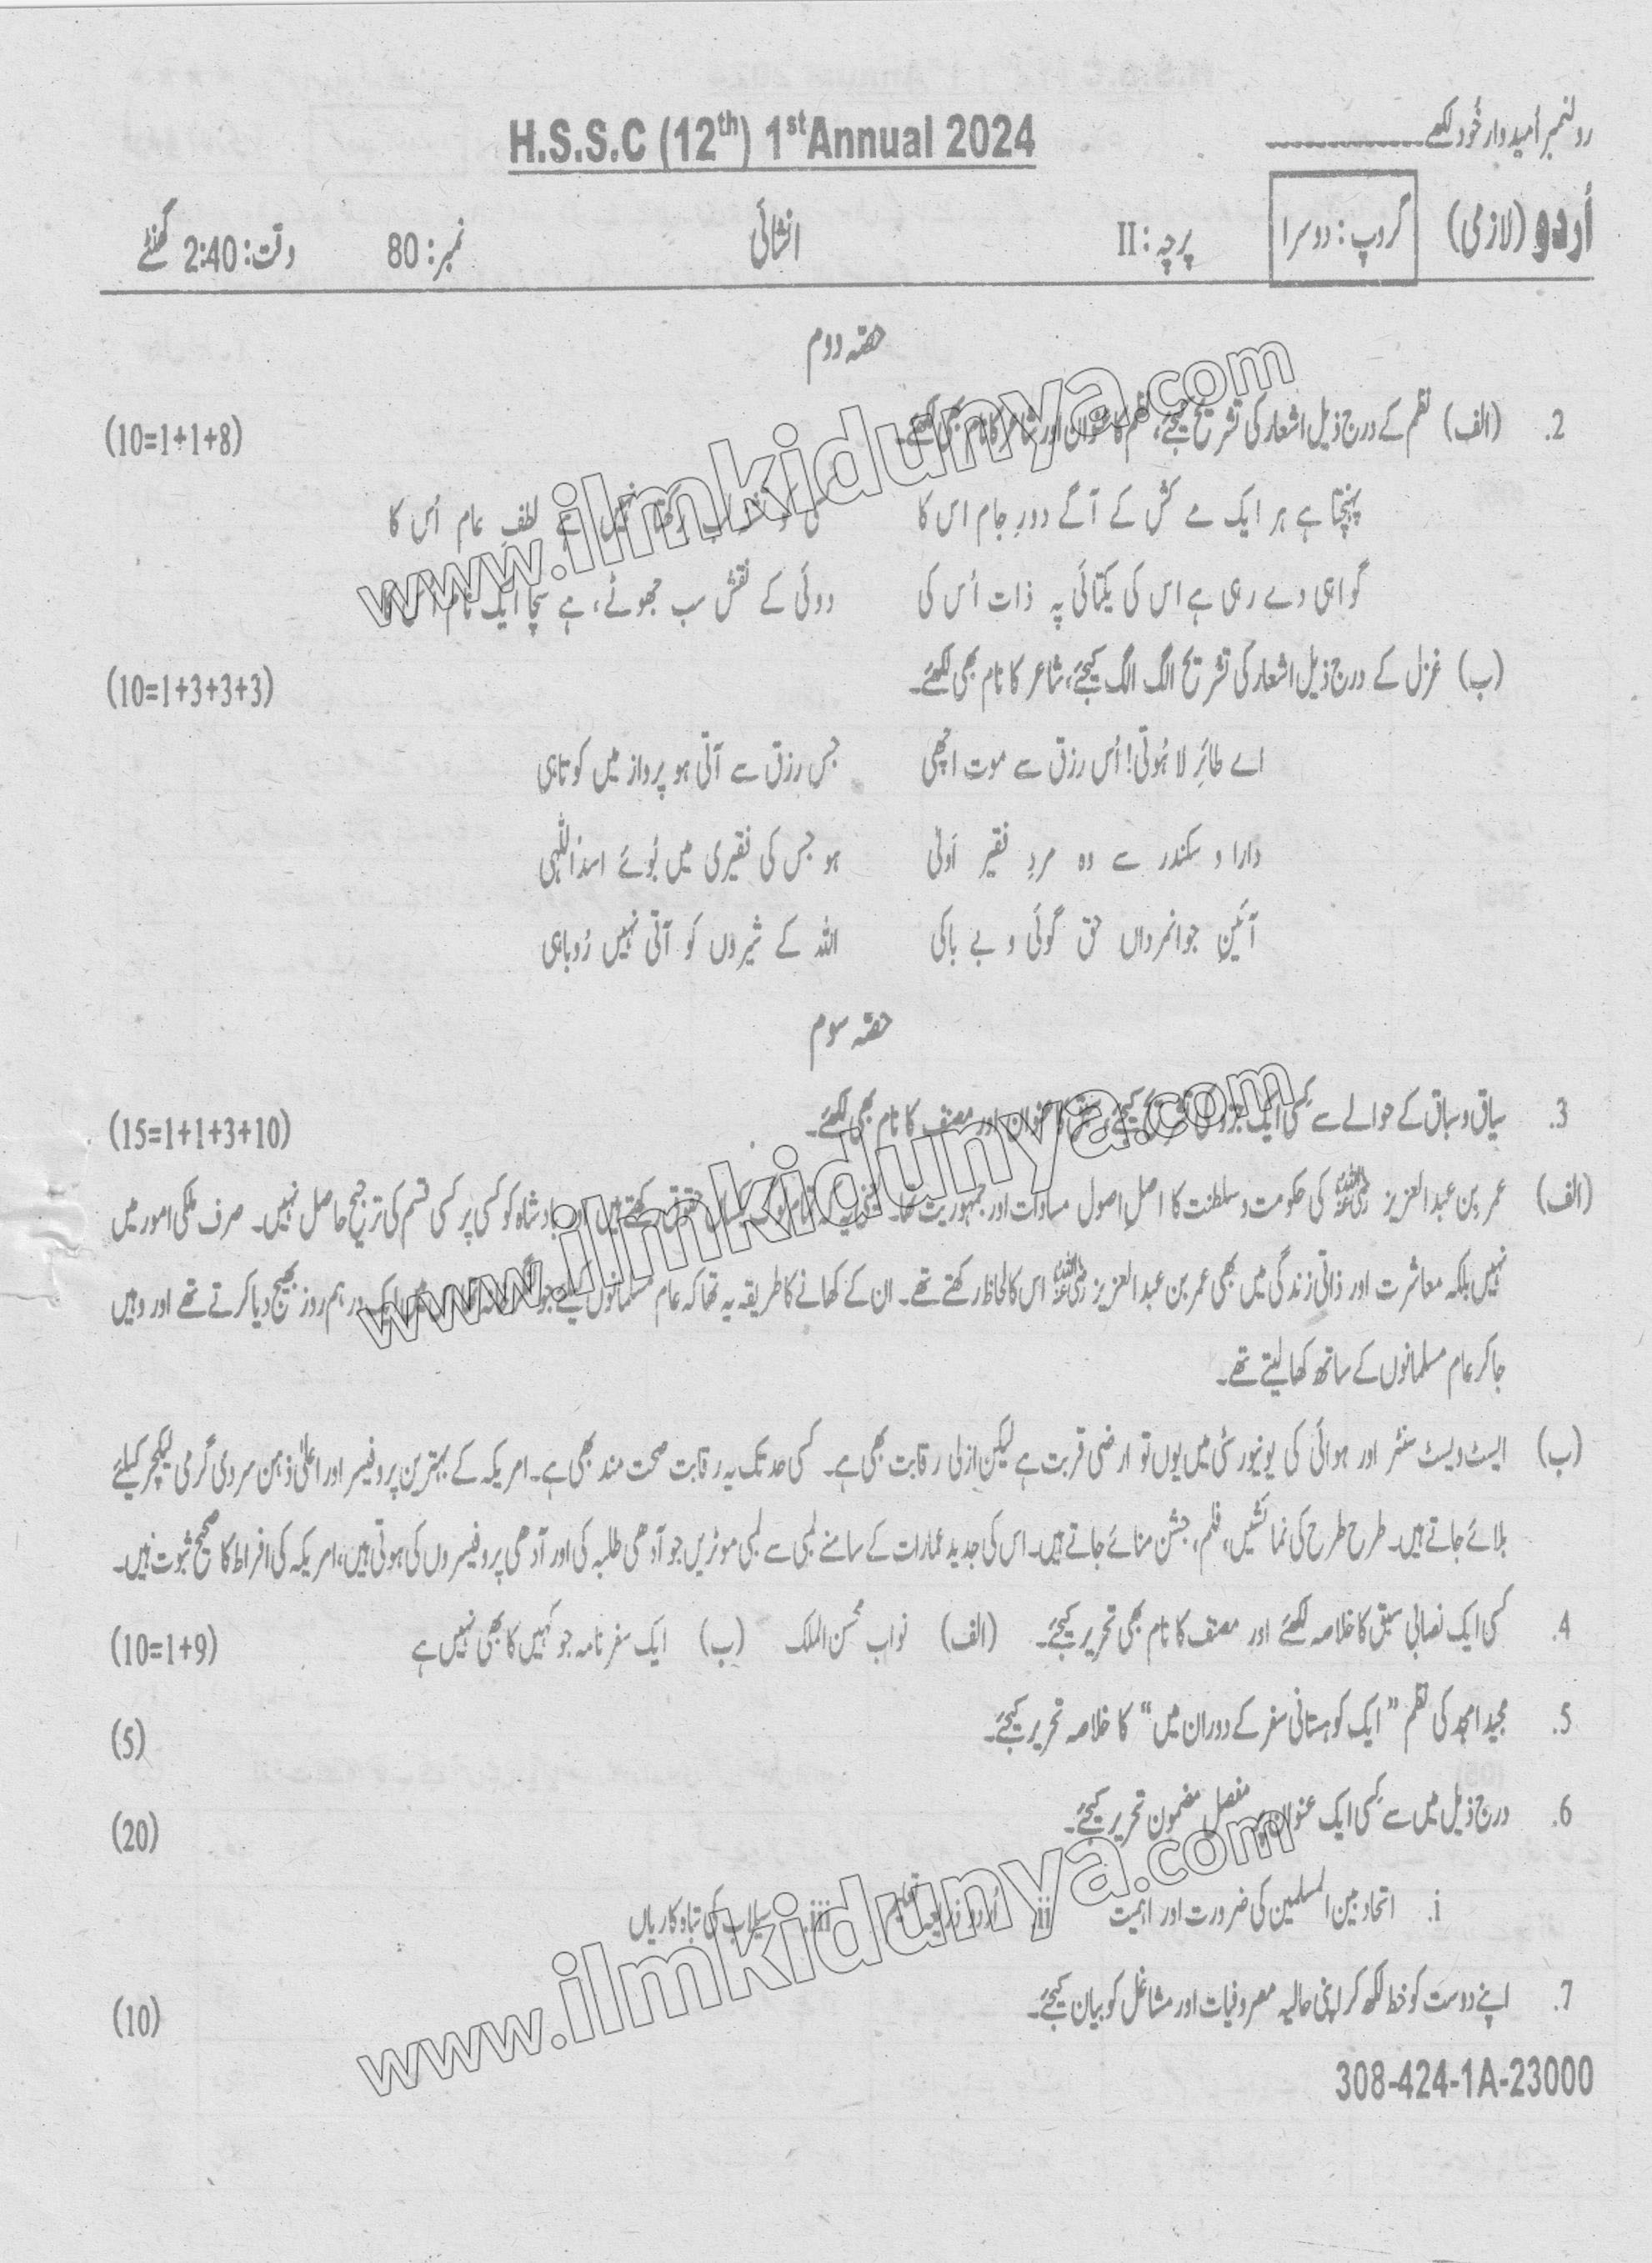 رولنمبر اُمیدوار خُود لکھے
H.S.S.C (12th) 1st Annual 2024
اُردو (لازمی) گروپ: دوسرا پرچہ: II انشائی نمبر: 80 وقت: 2:40 گھنٹے
حصّہ دوم
2. (الف) نظم کے درج ذیل اشعار کی تشریح کیجئے، نظم کا عنوان اور شاعر کا نام بھی لکھئے۔ (10=1+1+8)
پہنچتا ہے ہر ایک مے کش کے آگے دورِ جام اس کا ہے لطفِ عام اُس کا
گواہی دے رہی ہے اس کی یکتائی پہ ذات اُس کی دوئی کے نقش سب جھوٹے، ہے سچا ایک نام
(ب) غزل کے درج ذیل اشعار کی تشریح الگ الگ کیجئے، شاعر کا نام بھی لکھئے۔ (10=1+3+3+3)
اے طائرِ لاہُوتی! اُس رزق سے موت اچھی جس رزق سے آتی ہو پرواز میں کوتاہی
دارا و سکندر سے وہ مردِ فقیر اَولیٰ ہو جس کی فقیری میں بُوئے اسدُاللّٰہی
آئینِ جوانمرداں حق گوئی و بے باکی اللہ کے شیروں کو آتی نہیں رُوباہی
حصّہ سوم
3. سیاق و سباق کے حوالے سے کسی ایک جزو کی تشریح کیجئے، سبق کا عنوان اور مصنف کا نام بھی لکھئے۔ (15=1+1+3+10)
(الف) عمر بن عبدالعزیز رضی اللہ عنہ کی حکومت و سلطنت کا اصلِ اصول مساوات اور جمہوریت تھا۔ یعنی یہ کہ تمام لوگ یکساں حقوق رکھتے ہیں اور بادشاہ کو کسی پر کسی قسم کی ترجیح حاصل نہیں۔ صرف ملکی امور میں
نہیں بلکہ معاشرت اور ذاتی زندگی میں بھی عمر بن عبدالعزیز رضی اللہ عنہ اس کا لحاظ رکھتے تھے۔ ان کے کھانے کا طریقہ یہ تھا کہ عام مسلمانوں کیلئے جو ایک درہم روز بھیج دیا کرتے تھے اور وہیں
جا کر عام مسلمانوں کے ساتھ کھا لیتے تھے۔
(ب) ایسٹ ویسٹ سنٹر اور ہوائی کی یونیورسٹی میں یوں تو ارضی قربت ہے لیکن ازلی رقابت بھی ہے۔ کسی حد تک یہ رقابت صحت مند بھی ہے۔ امریکہ کے بہترین پروفیسر اور اعلیٰ ذہن سردی گرمی لیکچر کیلئے
بلائے جاتے ہیں۔ طرح طرح کی نمائشیں، فلم، جشن منائے جاتے ہیں۔ اس کی جدید عمارات کے سامنے لمبی سے لمبی موٹریں جو آدھی طلبہ کی اور آدھی پروفیسروں کی ہوتی ہیں، امریکہ کی افراط کا صحیح ثبوت ہیں۔
4. کسی ایک نصابی سبق کا خلاصہ لکھئے اور مصنف کا نام بھی تحریر کیجئے۔ (الف) نواب محسن الملک (ب) ایک سفر نامہ جو کہیں کا بھی نہیں ہے (10=1+9)
5. مجید امجد کی نظم "ایک کوہستانی سفر کے دوران میں" کا خلاصہ تحریر کیجئے۔ (5)
6. درج ذیل میں سے کسی ایک عنوان پر مفصل مضمون تحریر کیجئے۔ (20)
i. اتحاد بین المسلمین کی ضرورت اور اہمیت ii. اُردو ذریعہ تعلیم iii. سیلاب کی تباہ کاریاں
7. اپنے دوست کو خط لکھ کر اپنی حالیہ مصروفیات اور مشاغل کو بیان کیجئے۔ (10)
308-424-1A-23000
www.ilmkidunya.com
www.ilmkidunya.com
www.ilmkidunya.com